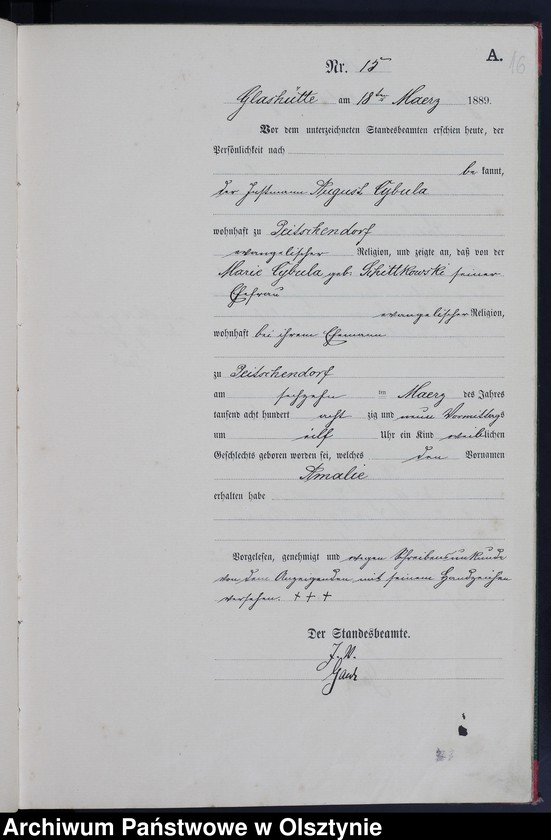 A.
16
Nr. 15
Glashütte am 18ten Maerz 1889.
Vor dem unterzeichneten Standesbeamten erschien heute, der
Persönlichkeit nach
be kannt,
der Instmann August Cybula
wohnhaft zu Peitschendorf
evangelischer Religion, und zeigte an, daß von der
Marie Cybula geb: Schittkowski seiner
Ehefrau
evangelischer Religion,
wohnhaft bei ihrem Ehemann
zu Peitschendorf
am sechzehn ten Maerz des Jahres
tausend acht hundert acht zig und neun Vormittags
um eilf Uhr ein Kind weiblichen
Geschlechts geboren worden sei, welches den Vornamen
Amalie
erhalten habe
Vorgelesen, genehmigt und wegen Schreibensunkunde
von dem Anzeigenden mit seinem Handzeichen
versehen. + + +
Der Standesbeamte.
J. V.
Archiwum Państwowe w Olsztynie